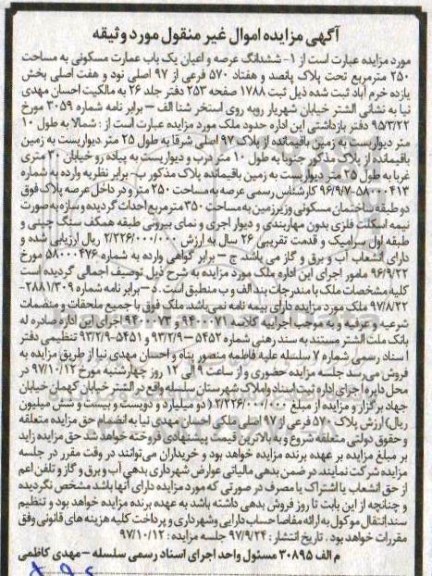 آگهی مزایده اموال غیر منقول مورد وثیقه
مورد مزایده عبارت است از ۱- ششدانگ عرصه و اعیان یک باب عمارت مسکونی به مساحت
۲۵۰ مترمربع تحت پلاک پانصد و هفتاد ۵۷۰ فرعی از ۹۷ اصلی نود و هفت اصلی بخش
یازده خرم آباد ثبت شده ذیل ثبت ۱۷۸۸ صفحه ۲۵۳ دفتر جلد ۲۶ به مالکیت احسان مهدی
نیا به نشانی الشتر خیابان شهریار روبه روی استخر شنا الف – برابر نامه شماره ۳۰۵۹ مورخ
۹۵/۳/۲۲ دفتر بازداشتی این اداره حدود ملک مورد مزایده عبارت است از : شمالا به طول ۱۰
متر دیواریست به زمین باقیمانده از پلاک ۹۷ اصلی شرقا به طول ۲۵ متر دیواریست به زمین
باقیمانده از پلاک مذکور جنوبا به طول ۱۰ متر درب و دیواریست به پیاده رو خیابان ۳۰ متری
غربا به طول ۲۵ متر دیواریست به زمین باقیمانده پلاک مذکور ب- برابر نظریه وارده به شماره
۵۸۰۰۰۴۱۳-۹۶/۹/۷ کارشناس رسمی عرصه به مساحت ۲۵۰ متر و در داخل عرصه پلاک فوق
دو طبقه ساختمان مسکونی و زیرزمین به مساحت ۳۵۰ مترمربع احداث گردیده و سازه به صورت
نیمه اسکلت فلزی بدون مهاربندی و دیوار اجری و نمای بیرونی طبقه همکف سنگ چینی و
طبقه اول سرامیک و قدمت تقریبی ۲۶ سال به ارزش ۲/۲۲۶/۰۰۰/۰۰۰ ریال ارزیابی شده و
دارای انشعاب آب و برق و گاز می باشد ج – برابر گواهی وارده به شماره ۵۸۰۰۰۴۷۶ مورخ
۹۶/۹/۲۲ مامور اجرای این اداره ملک مورد مزایده به شرح ذیل توصیف اجمالی گردیده است
کلیه مشخصات ملک با مندرجات بند الف و ب منطبق است. د– برابر نامه شماره ۲۸۸۱/۳۰۹-
۹۷/۸/۲۲ ملک مورد مزایده دارای بیمه نامه نمی باشد ملک فوق با جمیع ملحقات و منضمات
شرعیه و عرفیه و به موجب اجراییه کلاسه ۹۴۰۰۷۱ و ۹۴۰۰۷۲ اجرای این اداره صادره له
بانک ملت الشتر مستند به سند رهنی شماره ۵۴۵۲ – ۹۳/۲/۹ و ۵۴۵۱-۹۳/۲/۹ تنظیمی دفتر
اسناد رسمی شماره ۷ سلسله علیه فاطمه منصور پناه و احسان مهدی نیا از طریق مزایده به
فروش می رسد جلسه مزایده حضوری و از ساعت ۹ الی ۱۲ روز چهارشنبه مورخ ۹۷/۱۰/۱۲ در
محل دایره اجرای اداره ثبت اسناد و املاک شهرستان سلسله واقع در الشتر خیابان کهمان خیابان
جهاد برگزار و مزایده از مبلغ ۲/۲۲۶/۰۰۰/۰۰۰ ( دو میلیارد و دویست و بیست و شش میلیون
ریال) ارزش پلاک ۵۷۰ فرعی از ۹۷ اصلی ملکی احسان مهدی نیا به انضمام حق مزایده متعلقه
و حقوق دولتی متعلقه شروع و به بالاترین قیمت پیشنهادی فروخته خواهد شد حق مزایده زاید
بر مبلغ مزایده بر عهده برنده مزایده خواهد بود و خریداران می‌توانند در وقت مقرر در جلسه
مزایده شرکت نمایند، در ضمن بدهی مالیاتی عوارض شهرداری بدهی آب و برق و گاز و تلفن اعم
از حق انشعاب یا اشتراک یا مصرف در صورتی که مورد مزایده دارای آنها باشد مشخص نگردیده
و چنانچه از این بابت تا روز فروش بدهی داشته باشد به عهده برنده مزایده خواهد بود و تنظیم
سند انتقال موکول به ارائه مفاصا حساب دارایی و شهرداری و پرداخت کلیه هزینه های قانونی وفق
مقررات خواهد بود . تاریخ انتشار : ۹۷/۹/۲۴ جلسه مزایده: ۹۷/۱۰/۱۲
م الف ۳۰۸۹۵ مسئول واحد اجرای اسناد رسمی سلسله – مهدی کاظمی